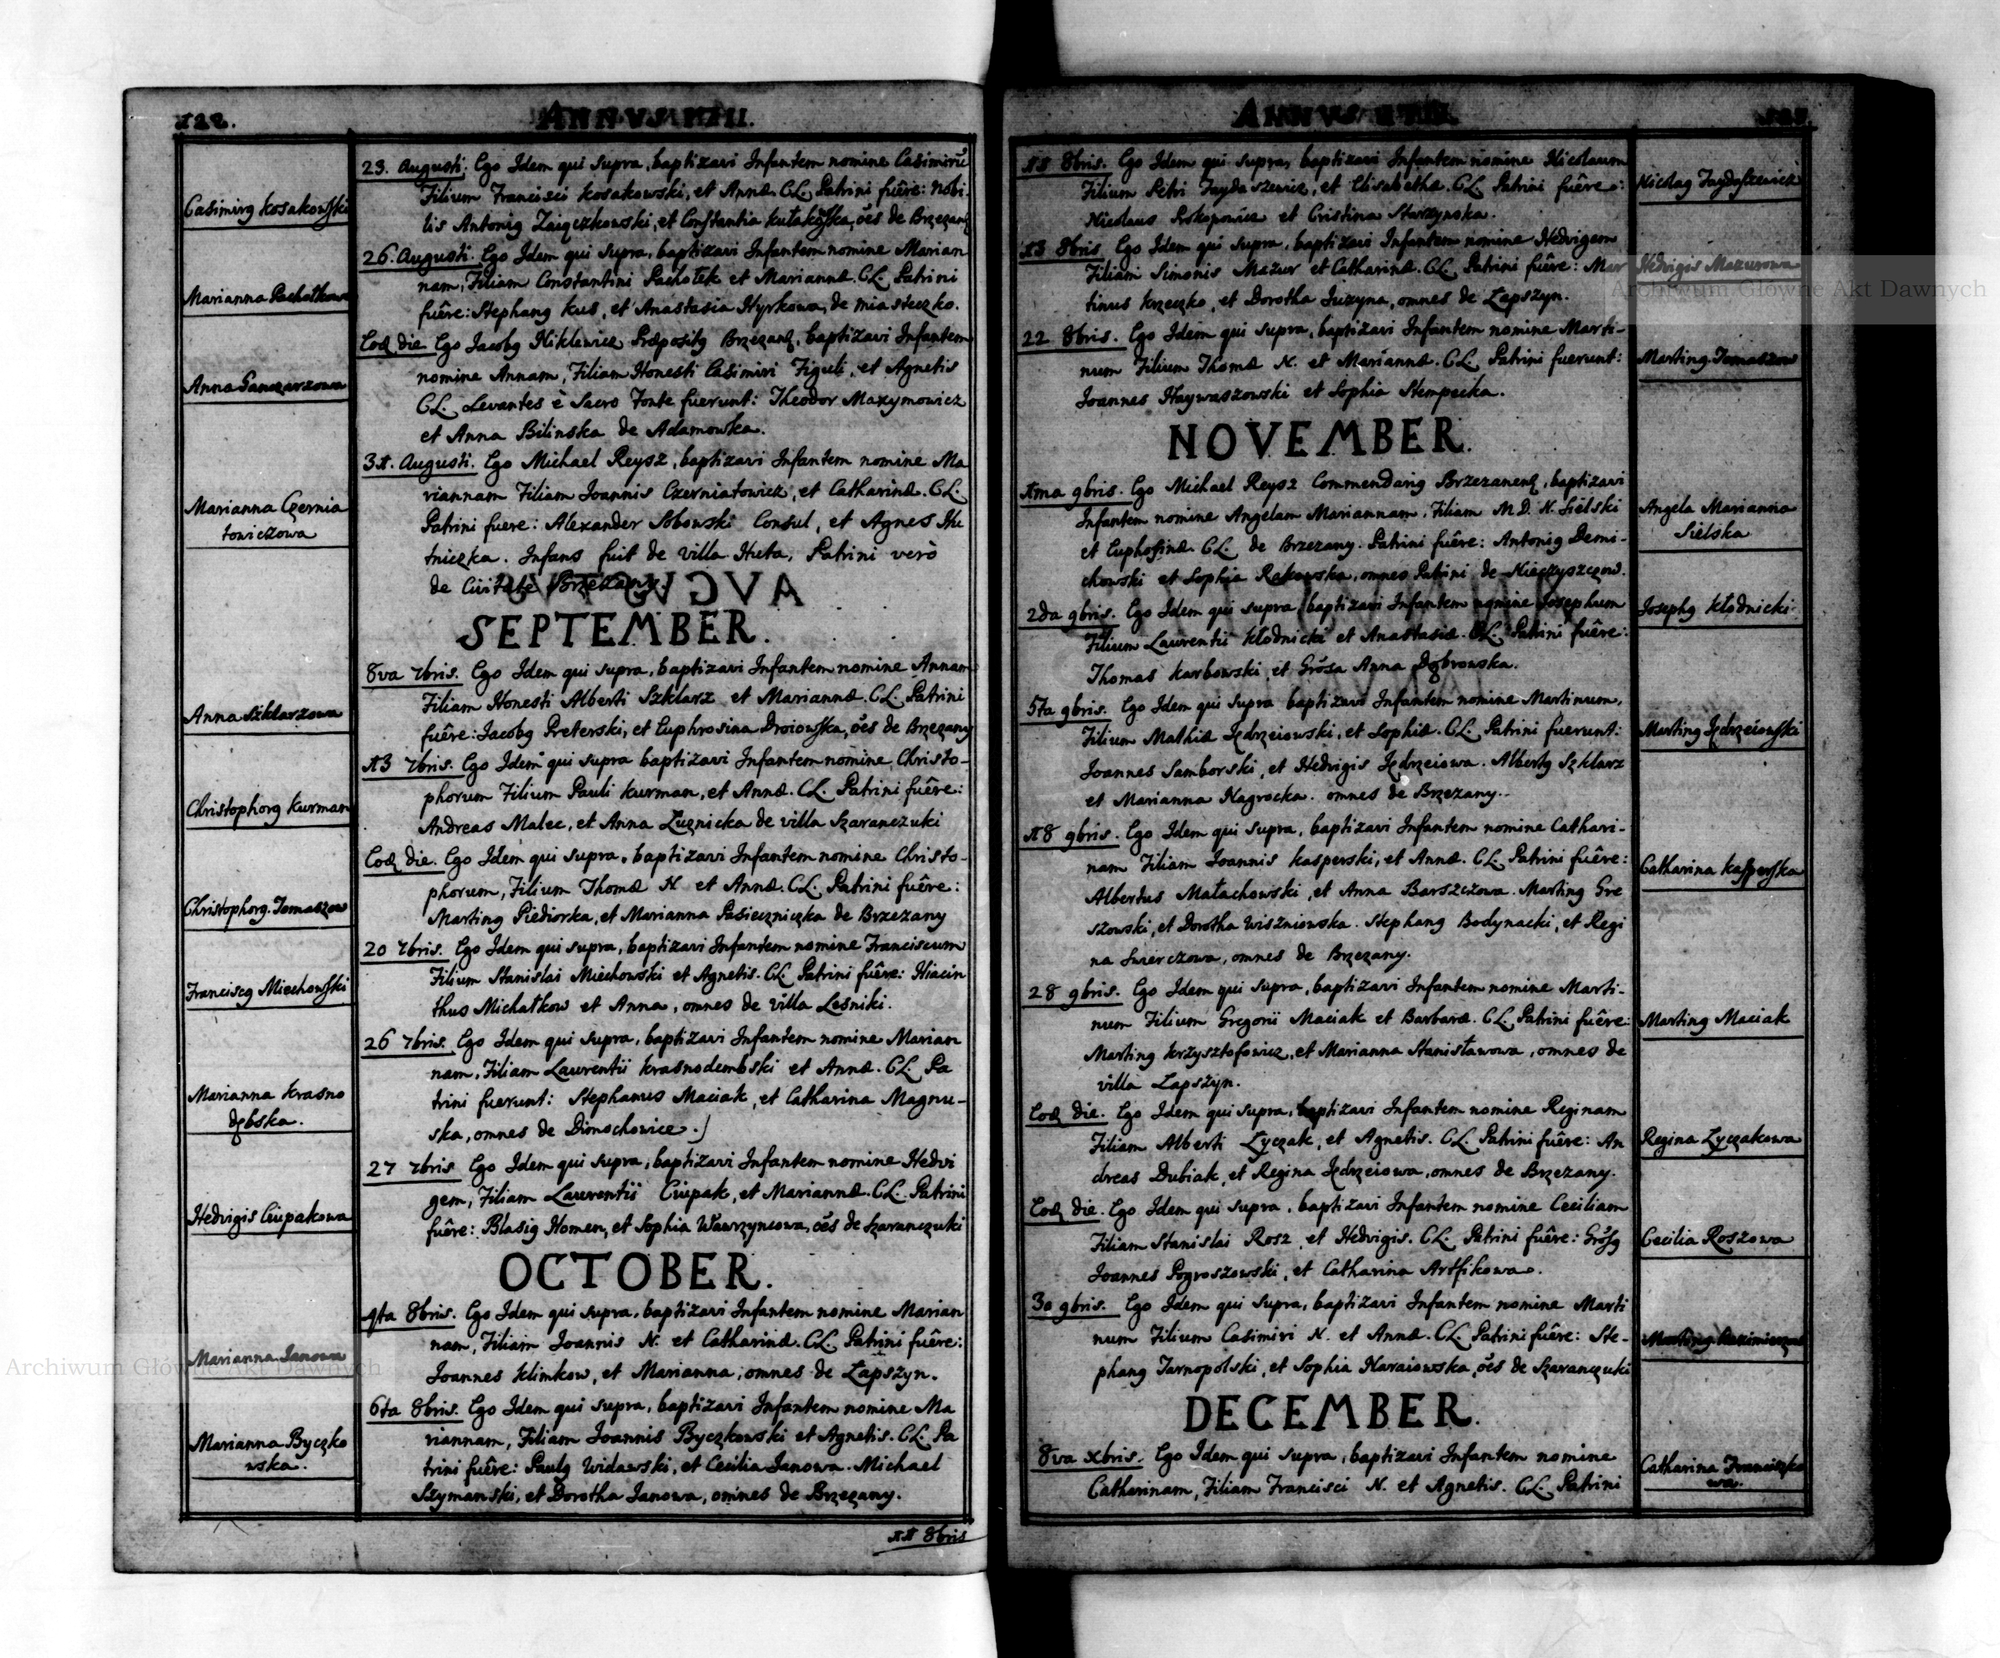 122.
ANNVS
Casimirg Kosakowski
23. Augusti. Ego Idem qui supra, baptizavi Infantem nomine Casimirũ
Filium Francisci Kosakowski, et Annæ. CL. Patrini fuêre: Nobi-
lis Antonig Zaięczkowski, et Constantia Kułakowska, ões de Brzezanÿ
Marianna Pachołkowa
26. Augusti. Ego Idem qui supra, baptizavi Infantem nomine Marian
nam, Filiam Constantini Pachołek et Mariannæ. CL. Patrini
fuêre: Stephang Kus, et Anastasia Hyrkowa, de miasteczko.
Anna Ganczarzowa
Eoḋ die Ego Jacobg Niklewicz Præpositg Brzezanẽ, baptizavi Infantem
nomine Annam, Filiam Honesti Casimiri Figuli, et Agnetis
CL. Levantes è Sacro Fonte fuerunt: Theodor Maxymowicz
et Anna Bilinska de Adamowka.
Marianna Czernia
towiczowa
31. Augusti. Ego Michael Reysz, baptizavi Infantem nomine Ma
riannam Filiam Joannis Czerniatowicz, et Catharinæ. CL.
Patrini fuere: Alexander Sobowski Consul, et Agnes Hu
tniczka. Infans fuit de villa Huta, Patrini verò
de Civitate Brzezany.
SEPTEMBER.
Anna Szklarzowa
8va 7bris. Ego Idem qui supra, baptizavi Infantem nomine Annam
Filiam Honesti Alberti Szklarz et Mariannæ. CL. Patrini
fuêre: Jacobg Preterski, et Euphrosina Droiowska, ões de Brzezany
Christophorg Kurman
13 7bris. Ego Idem qui supra baptizavi Infantem nomine Christo-
phorum Filium Pauli Kurman, et Annæ. CL. Patrini fuêre:
Andreas Malec, et Anna Luznicka de villa Szaranczuki
Christophorg Tomaszow
Eoḋ die. Ego Idem qui supra, baptizavi Infantem nomine Christo-
phorum, Filium Thomæ N et Annæ. CL. Patrini fuêre:
Marting Piediorka, et Marianna Pasieczniczka de Brzezany
Franciscg Miechowski
20 7bris. Ego Idem qui supra, baptizavi Infantem nomine Franciscum
Filium Stanislai Miechowski et Agnetis. CL. Patrini fuêre: Hiacin
thus Michałkow et Anna, omnes de villa Lesniki.
Marianna Krasno
dębska.
26 7bris. Ego Idem qui supra, baptizavi Infantem nomine Marian
nam, Filiam Laurentii Krasnodembski et Annæ. CL. Pa
trini fuerunt: Stephanus Maciak, et Catharina Magnu-
ska, omnes de Dimochowice.
Hedvigis Ciupakowa
27 7bris Ego Idem qui supra, baptizavi Infantem nomine Hedvi
gem, Filiam Laurentii Ciupak, et Mariannæ. CL. Patrini
fuêre: Blasig Homen, et Sophia Wawrzyncowa, ões de Szaranczuki
OCTOBER.
Marianna Janowa
4ta 8bris. Ego Idem qui supra, baptizavi Infantem nomine Marian
nam, Filiam Joannis N. et Catharinæ. CL. Patrini fuêre:
Joannes Klimkow, et Marianna, omnes de Lapszyn.
Marianna Byczko
wska.
6ta 8bris. Ego Idem qui supra, baptizavi Infantem nomine Ma
riannam, Filiam Joannis Byczkowski et Agnetis. CL. Pa
trini fuêre: Paulg Widawski, et Cecilia Janowa. Michael
Szymanski, et Dorotha Janowa, omnes de Brzezany.
11 8bris
ANNVS
11 8bris. Ego Idem qui supra, baptizavi Infantem nomine Nicolaum
Filium Petri Taydaszewicz, et Elisabethæ. CL. Patrini fuêre:
Nicolaus Prokopowicz et Cristina Starzynska.
Nicolag Taydaszewicz
13 8bris Ego Idem qui supra, baptizavi Infantem nomine Hedvigem
Filiam Simonis Mazur et Catharinæ. CL. Patrini fuêre: Mar
tinus Krzeczko, et Dorotha Juzyna, omnes de Lapszyn.
Hedvigis Mazurowa
22 8bris. Ego Idem qui supra, baptizavi Infantem nomine Marti-
num Filium Thomæ N. et Mariannæ. CL. Patrini fuerunt:
Joannes Haywaszowski et Sophia Stempecka.
Marting Tomaszow
NOVEMBER.
1ma 9bris. Ego Michael Reysz Commendarig Brzezanenẽ, baptizavi
Infantem nomine Angelam Mariannam, Filiam M. D. N. Sielski
et Euphosinæ. CL. de Brzezany. Patrini fuêre: Antonig Demi-
chowski et Sophia Rakowska, omnes Patrini de Mieczyszczow.
Angela Marianna
Sielska
2da 9bris. Ego Idem qui supra, baptizavi Infantem nomine Josephum
Filium Laurentii Kłodnicki et Anastasiæ. CL. Patrini fuêre:
Thomas Karbowski, et Grosa Anna Dąbrowska.
Josephg Kłodnicki
5ta 9bris. Ego Idem qui supra baptizavi Infantem nomine Martinum,
Filium Mathiæ Jędrzeiowski, et Sophiæ. CL. Patrini fuerunt:
Joannes Samborski, et Hedvigis Jędrzeiowa. Albertg Szklarz
et Marianna Nagrocka. omnes de Brzezany.
Marting Jędrzeiowski
18 9bris. Ego Idem qui supra, baptizavi Infantem nomine Cathari-
nam Filiam Joannis Kasperski, et Annæ. CL. Patrini fuêre:
Albertus Małachowski, et Anna Barszczowa. Marting Gre
szowski, et Dorotha Wiszniowska. Stephang Bodynacki, et Regi
na Swierczowa, omnes de Brzezany.
Catharina Kasperska
28 9bris. Ego Idem qui supra, baptizavi Infantem nomine Marti-
num Filium Gregorii Maciak et Barbaræ. CL. Patrini fuêre:
Marting Krzysztofowicz, et Marianna Stanisławowa, omnes de
villa Lapszyn.
Marting Maciak
Eoḋ die. Ego Idem qui supra, baptizavi Infantem nomine Reginam
Filiam Alberti Łyczak, et Agnetis. CL. Patrini fuêre: An
dreas Dubiak, et Regina Jędrzeiowa, omnes de Brzezany.
Regina Łyczakowa
Eoḋ die. Ego Idem qui supra, baptizavi Infantem nomine Ceciliam
Filiam Stanislai Rosz, et Hedvigis. CL. Patrini fuêre: Grõsg
Joannes Pogroszowski, et Catharina Artfikowa.
Cecilia Roszowa
30 9bris. Ego Idem qui supra, baptizavi Infantem nomine Marti
num Filium Casimiri N. et Annæ. CL. Patrini fuêre: Ste-
phang Tarnopolski, et Sophia Naraiowska, ões de Szaranczuki
Marting
DECEMBER.
8va Xbris. Ego Idem qui supra, baptizavi Infantem nomine
Catharinam, Filiam Francisci N. et Agnetis. CL. Patrini
Catharina Franciszko
wa.
Archiwum Główne Akt Dawnych
Archiwum Główne Akt Dawnych